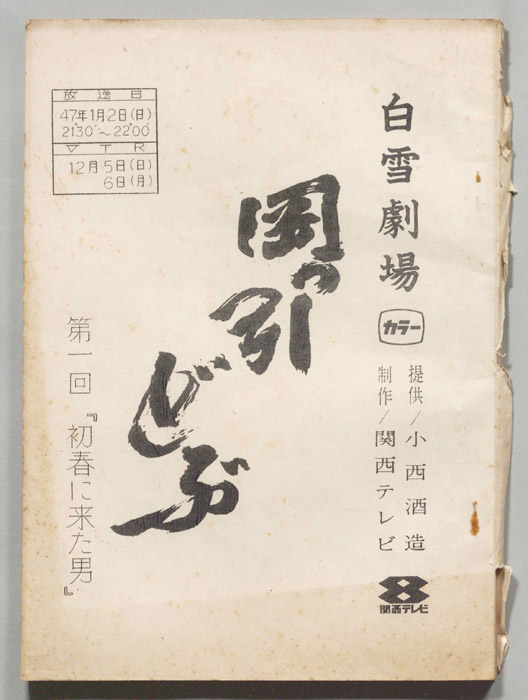 白雪劇場
カラー
提供/小西酒造
制作/関西テレビ
8
関西テレビ
岡っ引どぶ
第一回『初春に来た男』
放送日
47年1月2日(日)
21°30′～22°00′
VTR
12月5日(日)
6日(月)